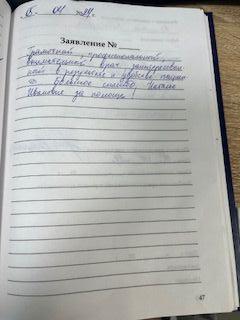 04
Заявление №
Грамотный, профессиональный,
внимательный врач заинтересован
ный в результате и удобстве пациен
Большое спасибо,
Ивановне за помощь!
47